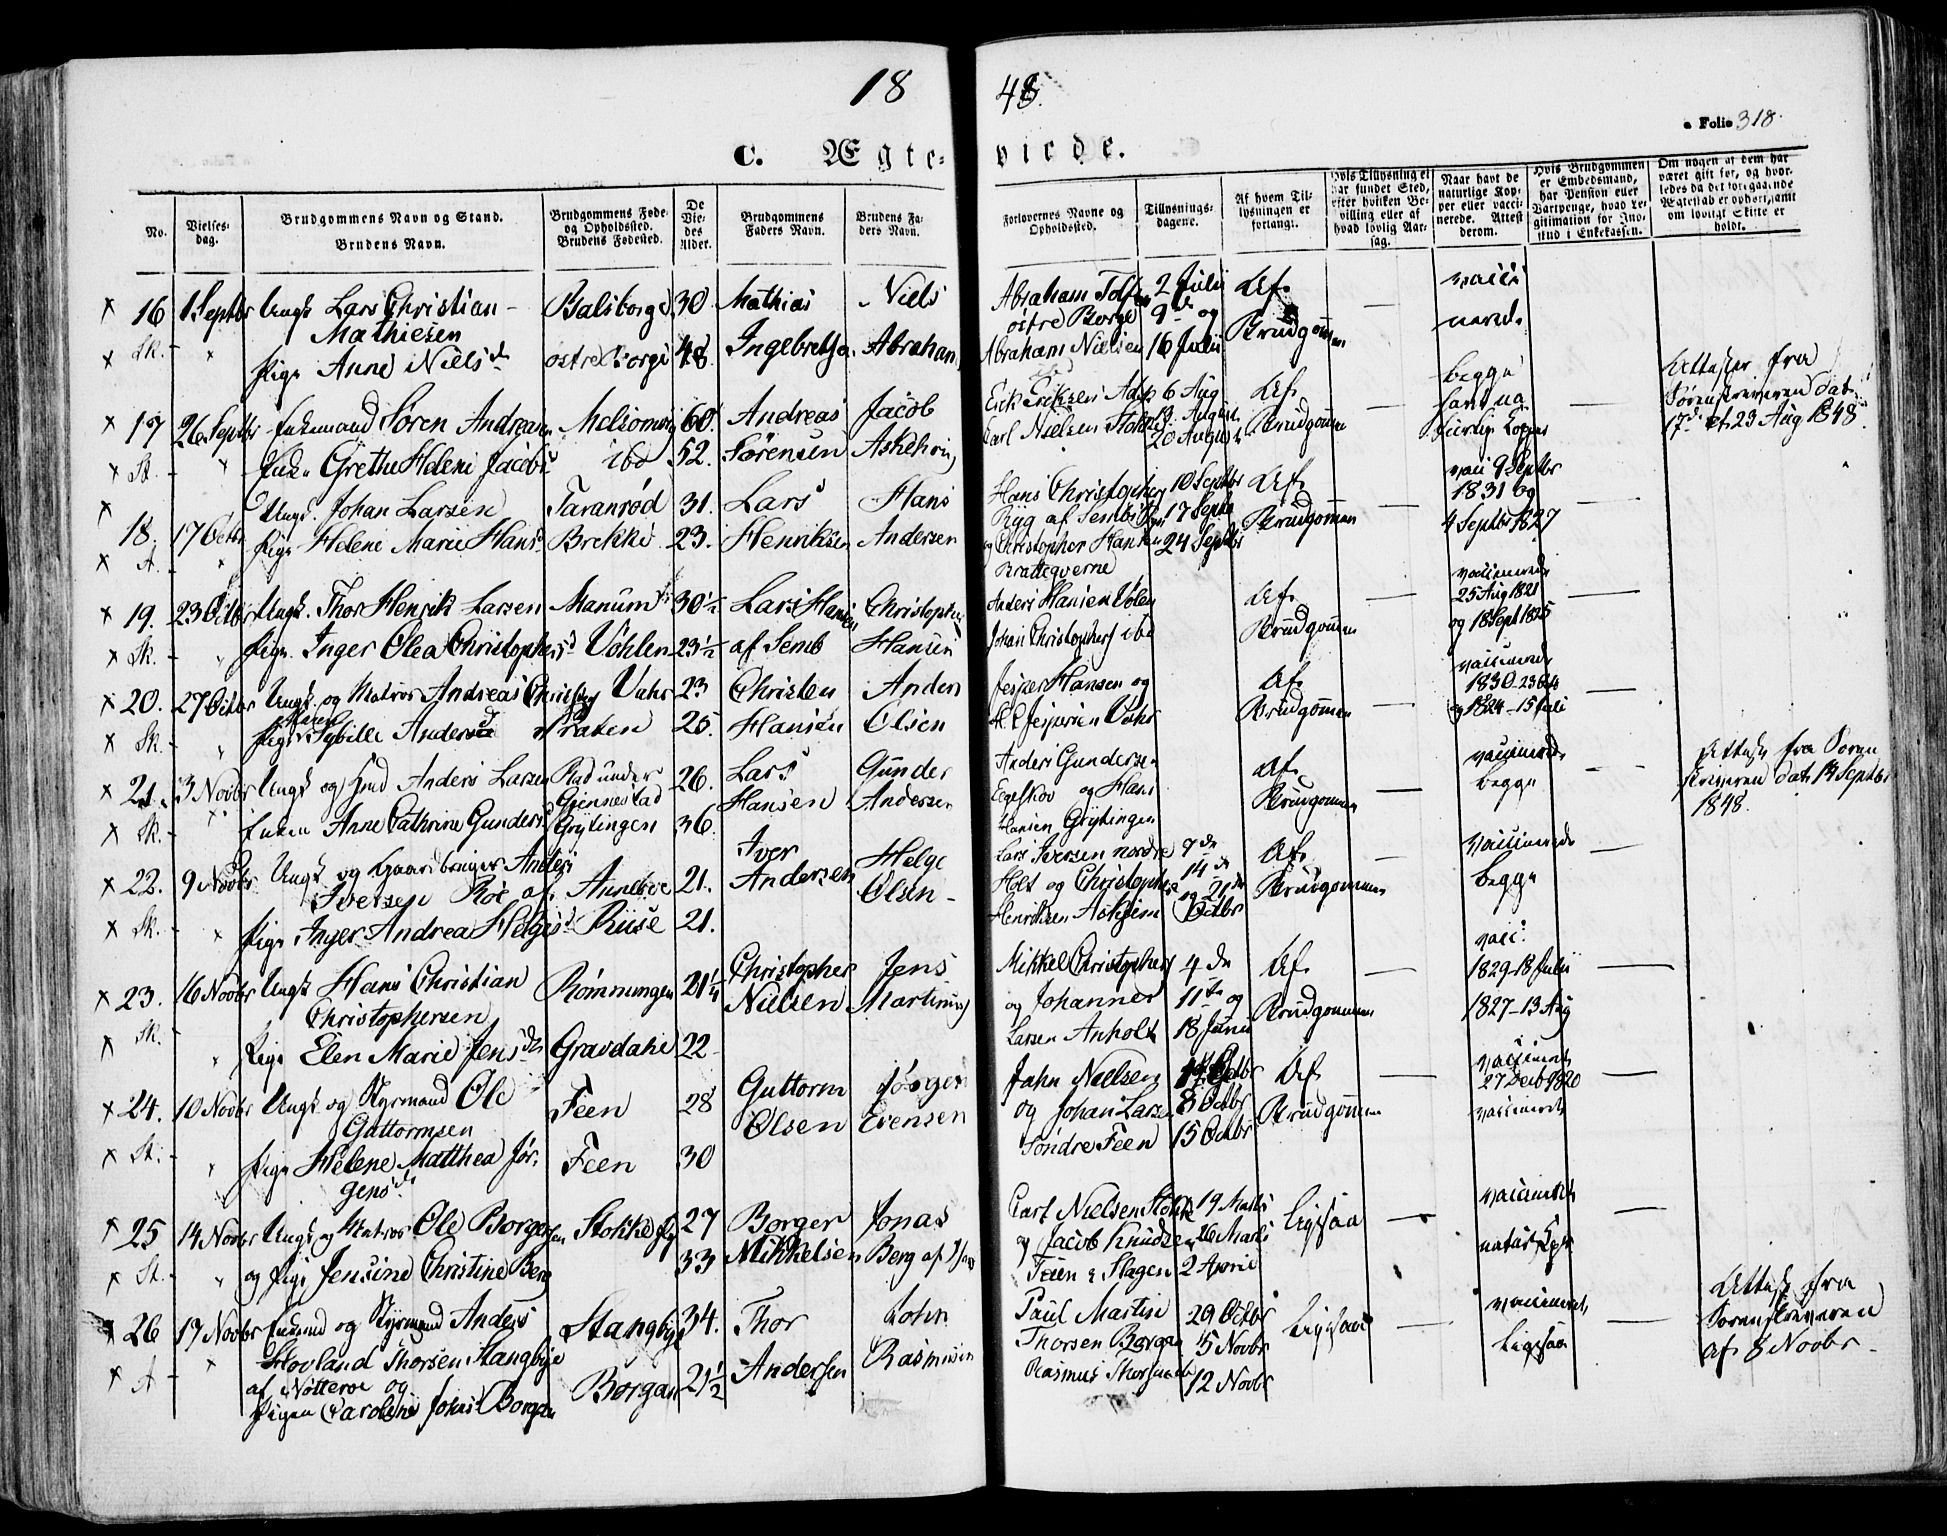 18 48.
Folio 318.
C. Ægte- viede.
No.
Vielses-dag.
Brudgommens Navn og Stand.
Brudens Navn.
Brudgommens Føde- og Opholdssted.
Brudens Fødested.
De Viedes Alder.
Brudgommens Faders Navn.
Brudens Faders Navn.
Forlovernes Navne og Opholdssted.
Tillysnings-dagene.
Af hvem Tillysningen er forlangt.
Hvis Tillysning ei har fundet Sted, efter hvilken Bevilling eller af hvad lovlig Aarsag.
Naar havt de naturlige Kopper eller vaccinerede. Attest derom.
Hvis Brudgommen er Embedsmand, har Pension eller Vartpenge, hvad Legitimation for Indskud i Enkekassen.
Om nogen af dem har været gift før, og hvorledes da det foregaaende Ægteskab er ophørt, samt om lovligt Skifte er holdt.
16 1 Septbr Ungk Lars Christian Mathiesen Balsborge 30 Mathias Niels Abraham 2 Julii Af vacci
Sk. " Pige Anne Nielsd østre Borge 48 Ingebretsen Abraham østre Borge 9de og Abraham Nielsen 16 Julii Brudgommen nerede
17 26 Septbr Enkemand Søren Andreasen Melsomvig 60 Andreas Jacob Erik Eriksen 6 Aug Af begge Attester fra
St. " Enke Grethe Helene Jacobsd ibd 52. Sørensen Askehoug Carl Nielsen Stokke 13 August 20 August Brudgommen Sorenskriveren dat 17de et 23 Aug 1848.
18. 17 Octbr Ungk. Johan Larsen Taranrød 31. Lars Hans Hans Christophers 10 Septbr Af vacc 9 Septbr 1831 og
A. " Pige Helene Marie Hansd Brekke 23. Henriksen Andersen Ryg af Sem 17 Septr og Christopher Hansen 24 Septbr Brudgommen 4 Septbr 1827
Bratteqverne
19. 23 Octbr Ungk. Thor Henrik Larsen Manum 30½ Lars Hansen Christopher Anders Hansen Volen Af vaccinerede 25 Aug 1821
Sk. " Pige Inger Olea Christophersd Vøhlen 23½ af Semb Hansen Johan Christophers ibd Brudgommen og 18 Sept 1825
20. 27 Octbr Ungk. og Matros Andreas Christens Vahr 23 Christen Anders Jesper Hansen og Af vaccinerede 1830
Sk. " Pige Maren Sybille Andersd Praten 25. Hansen Olsen H. Jespersen Vahr Brudgommen og 1824 - 15 Juli
21. 3 Novbr Ungk og Hmd Anders Larsen Rød under Gjennestad 26. Lars Gunder Anders Gundersen Af vaccinerede Attest fra Soren
Sk. " Enken Anne Cathrine Gundersd Grytingen 36. Hansen Andersen og Hans Hansen Grytingen Brudgommen begge skriveren dat 14 Septbr 1848.
22. 9 Novbr Ungk og Gaardbruger Anders Iversen Roe af Annebøe 21. Iver Andersen Helge Olsen Lars Iversen nordre 7de Holt og Christopher 14de og 21de Af Brudgommen vaccinerede begge
Sk. " Pige Inger Andrea Helgesd Riise 21. Henriksen Askjem Octbr
23. 16 Novbr Ungk Hans Christian Christophersen Rømmingen 21¼ Christopher Nielsen Jens Martinus Mikkel Christophers 4de Af vacc: 1829-18 Julii
Sk. " Pige Elen Marie Jensdr Gravdahl 22 og Johannes 11te og Larsen Anholt 18 Juni Brudgommen 1827-13 Aug
24. 10 Novbr Ungk. og Styrmand Ole Guttormsen Feen 28 Guttorm Olsen Jørgen Evensen Jahn Nielsen Octbr Af vaccineret 27 Decb 1820
St. " Pige Helene Matthea Jørgensd Feen 30 og Johan Larsen 8 Octbr Søndre Feen 15 Octbr Brudgommen vaccineret
25 14 Novbr Ungk og Matros Ole Borgersen Stokke 27 Borger Jonas Carl Nielsen Stokke 19 Marts ligesaa vaccineret
St. " og Pige Jensine Christine Berg 33 Mikkelsen Berg af og Jacob Knudsen 26 Marts Feen i Slagen 2 April naturl. Kopr
26 17 Novbr Enkemd og Styrmand Anders Hovland Thorsen Stangbye af Nøtterøe og Stangbye 34. Thor John Paul Martin 29 Octbr ligesaa vaccineret Attest fra
A " Pigen Caroline Johnsd Borgen Borgan 21½ Andersen Rasmusen Thorsen Borgen 5 Novbr Rasmus 12 Novbr ligesaa Sorenskriveren af 8 Novbr